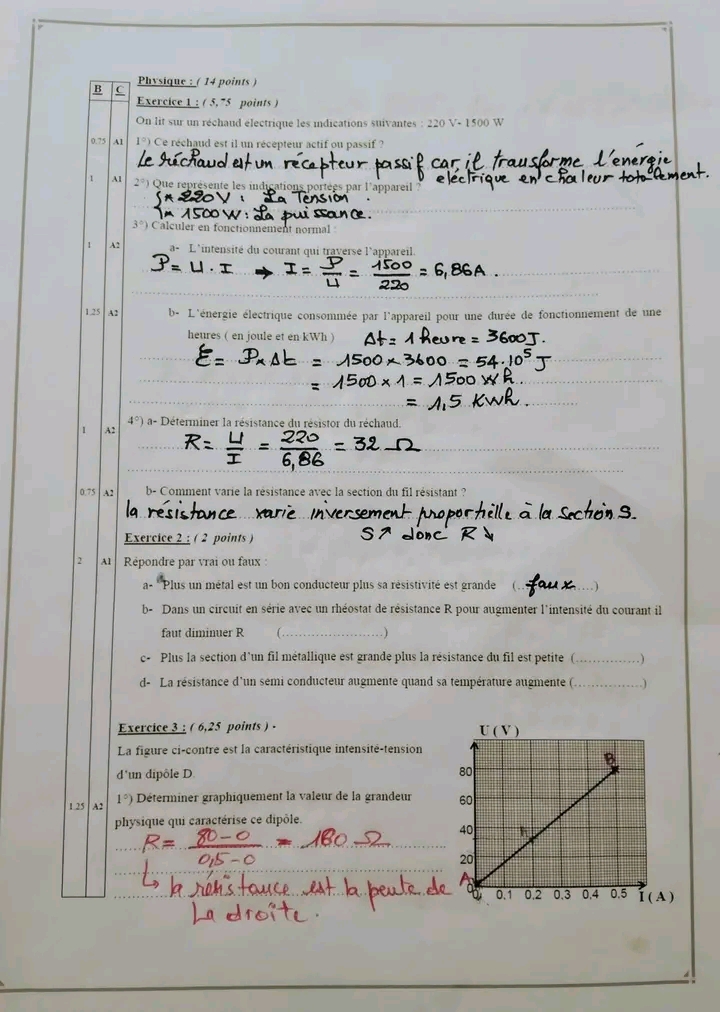 Physique : ( 14 points )
B C
Exercice 1 : ( 5,75 points )
On lit sur un réchaud électrique les indications suivantes : 220 V- 1500 W
0.75 A1 1°) Ce réchaud est il un récepteur actif ou passif ?
Le réchaud est un récepteur passif car il transforme l'énergie
électrique en chaleur totalement.
1 A1 2°) Que représente les indications portées par l'appareil ?
* 220V : La Tension
* 1500W : La puissance.
3°) Calculer en fonctionnement normal :
1 A2 a- L'intensité du courant qui traverse l'appareil.
P = U . I → I = P/U = 1500/220 = 6,86A .
1.25 A2 b- L'énergie électrique consommée par l'appareil pour une durée de fonctionnement de une
heures ( en joule et en kWh ) Δt = 1 heure = 3600J.
E = P x Δt = 1500 x 3600 = 54.10⁵ J
= 1500 x 1 = 1500 wh.
= 1,5 Kwh.
1 A2 4°) a- Déterminer la résistance du résistor du réchaud.
R = U/I = 220/6,86 = 32 Ω
0.75 A2 b- Comment varie la résistance avec la section du fil résistant ?
la résistance varie inversement proportielle à la section S.
S↗ donc R↘
Exercice 2 : ( 2 points )
2 A1 Répondre par vrai ou faux :
a- Plus un métal est un bon conducteur plus sa résistivité est grande (..faux....)
b- Dans un circuit en série avec un rhéostat de résistance R pour augmenter l'intensité du courant il
faut diminuer R (........................)
c- Plus la section d'un fil métallique est grande plus la résistance du fil est petite (................)
d- La résistance d'un semi conducteur augmente quand sa température augmente (.................)
Exercice 3 : ( 6,25 points ) -
La figure ci-contre est la caractéristique intensité-tension
d'un dipôle D.
1.25 A2 1°) Déterminer graphiquement la valeur de la grandeur
physique qui caractérise ce dipôle.
R = 80-0/0,5-0 = 160 Ω
↳ la résistance est la pente de
La droite.
U ( V )
B
80
60
40
20
A
0 0,1 0,2 0,3 0,4 0,5 I ( A )